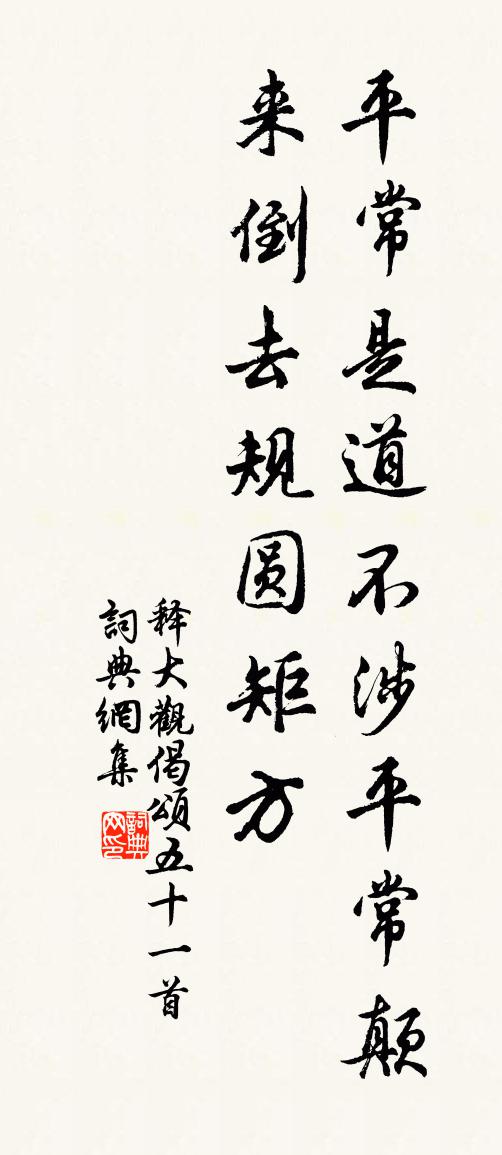 平常是道不涉平常颠
来倒去规圆矩方
释大觀偈頌五十一首
詞典網集
詞典网印